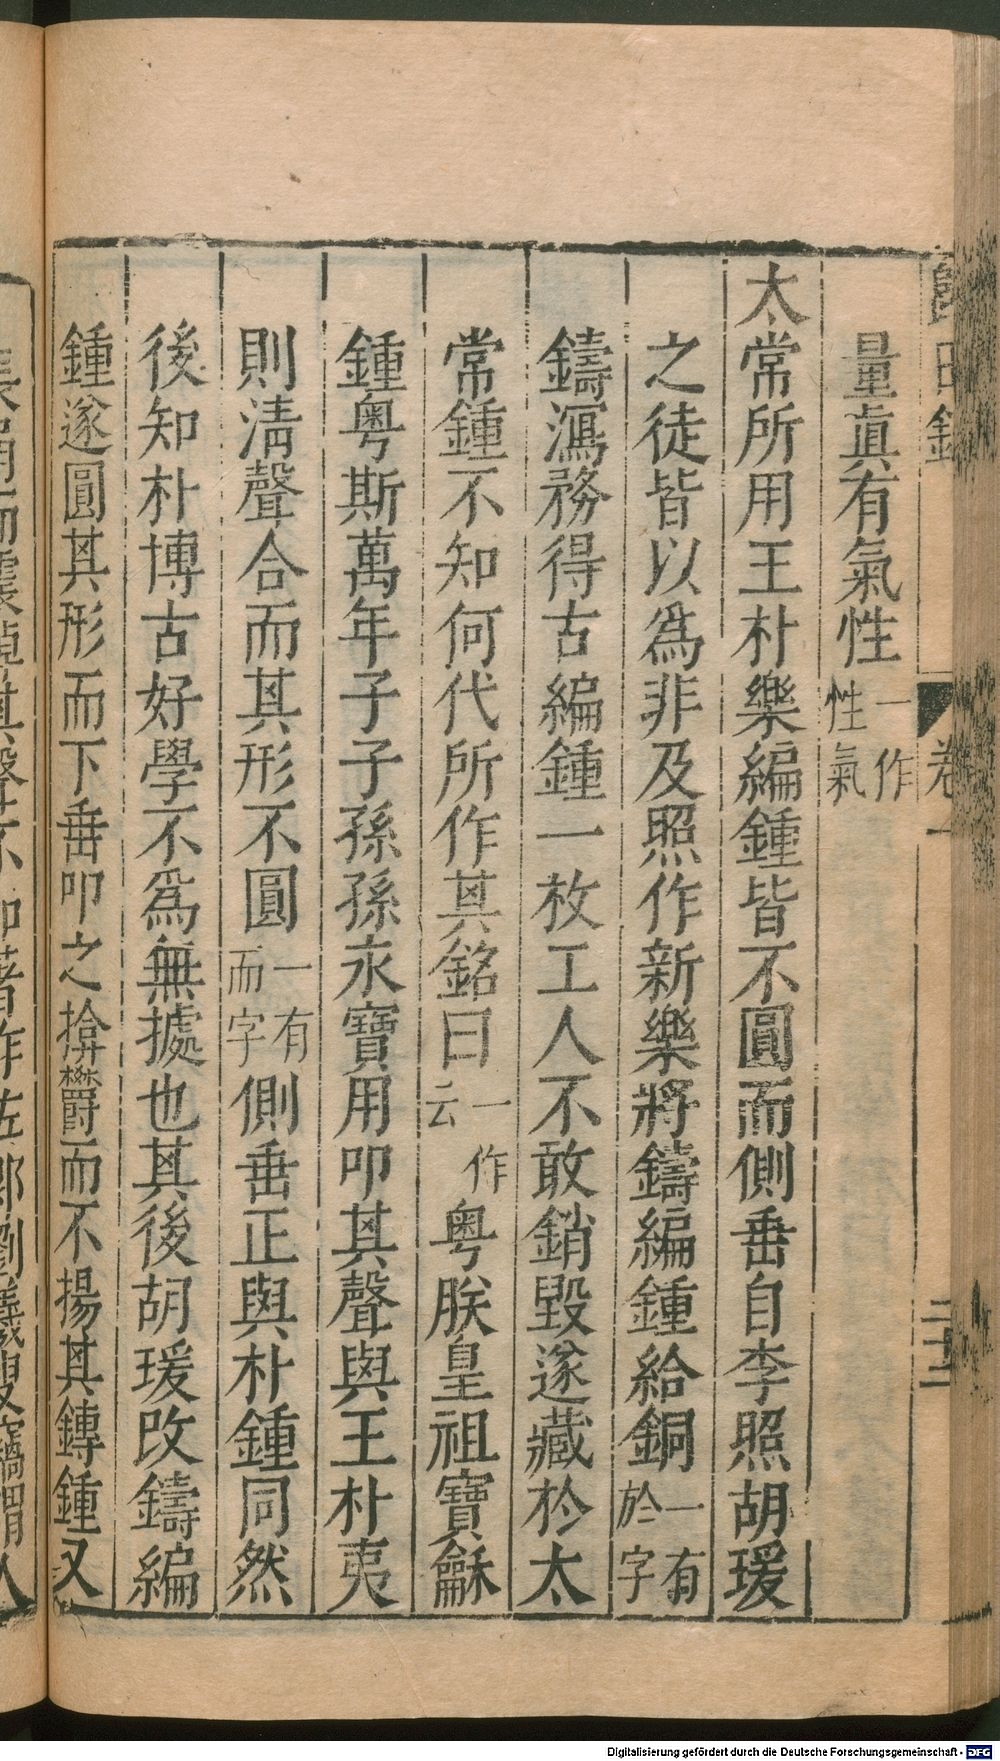 量眞有氣性一作性氣
太常所用王朴樂編鍾皆不圓而側垂自李照胡瑗
之徒皆以爲非及照作新樂將鑄編鍾給銅一有於字
鑄瀉務得古編鍾一枚工人不敢銷毀遂藏於太
常鍾不知何代所作其銘曰一作云粤朕皇祖寶龢
鍾粤斯萬年子子孫孫永寶用叩其聲與王朴夷
則清聲合而其形不圓一有而字側垂正與朴鍾同然
後知朴博古好學不爲無據也其後胡瑗改鑄編
鍾遂圓其形而下垂叩之掩鬱而不揚其鎛鍾又
卷一
Digitalisierung gefördert durch die Deutsche Forschungsgemeinschaft - DFG